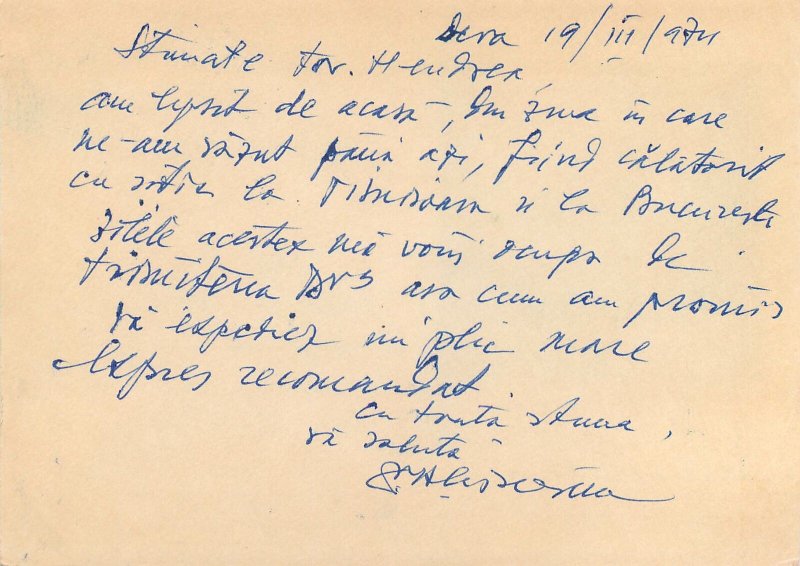 Deva 19/III/974
Stimate tov. Hendrea,
am lipsit de acasă, din ziua în care
ne-am văzut până azi, fiind călătorit
cu soția la Timisoara si la București
Zilele acestea mă voiu ocupa de
trimiterea Dvs asa cum am promis
Vă expediez un plic mare
Expres recomandat.
cu toată stima,
vă salută